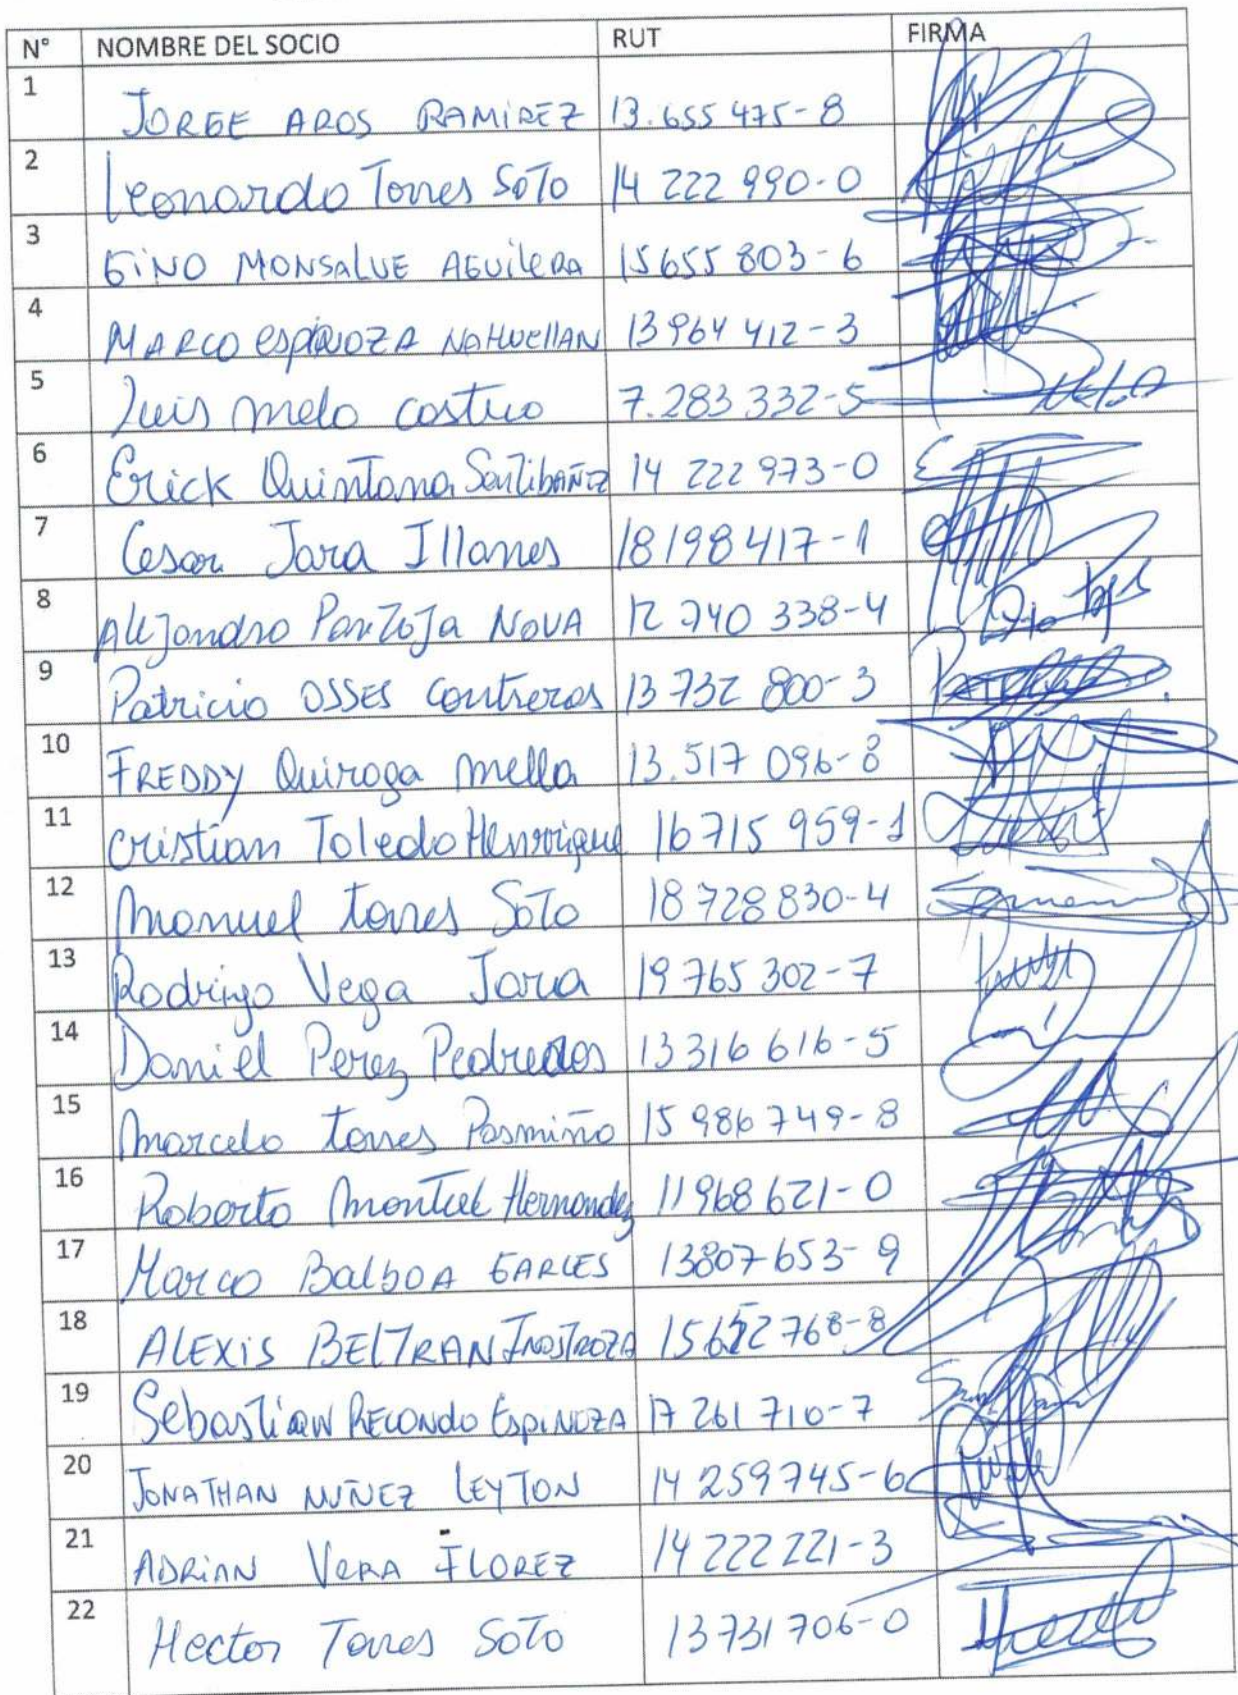 N° NOMBRE DEL SOCIO RUT FIRMA
1 JORGE AROS RAMIREZ 13.655 475-8
2 Leonardo Torres Soto 14 222 990-0
3 GINO MONSALVE AGUILERA 15655 803-6
4 MARCO espinoza NAHUELLAN 13 964 412-3
5 Luis melo castro 7.283 332-5
6 Erick Quintana Santibañez 14 222 973-0
7 Cesar Jara Illanes 18198417-1
8 Alejandro Pantoja NOVA 12 740 338-4
9 Patricio OSSES contreras 13 732 800-3
10 FREDDY Quiroga mella 13.517 096-8
11 cristian Toledo Henrriquez 16 715 959-1
12 Manuel torres Soto 18 728 830-4
13 Rodrigo Vega Jara 19 765 302-7
14 Daniel Perez 13 316 616-5
15 Marcelo torres Pasmiño 15 986 749-8
16 Roberto Montiel Hernandez 11 968 621-0
17 Marco Balboa GARCES 13807653-9
18 ALEXIS BELTRAN INOSTROZA
19 Sebastian RECONDO ESPINOZA 17 261 710-7
20 JONATHAN NUÑEZ LEYTON 14 259 745-6
21 ADRIAN VERA FLOREZ 14 222 221-3
22 Hector Torres Soto 13 731 706-0